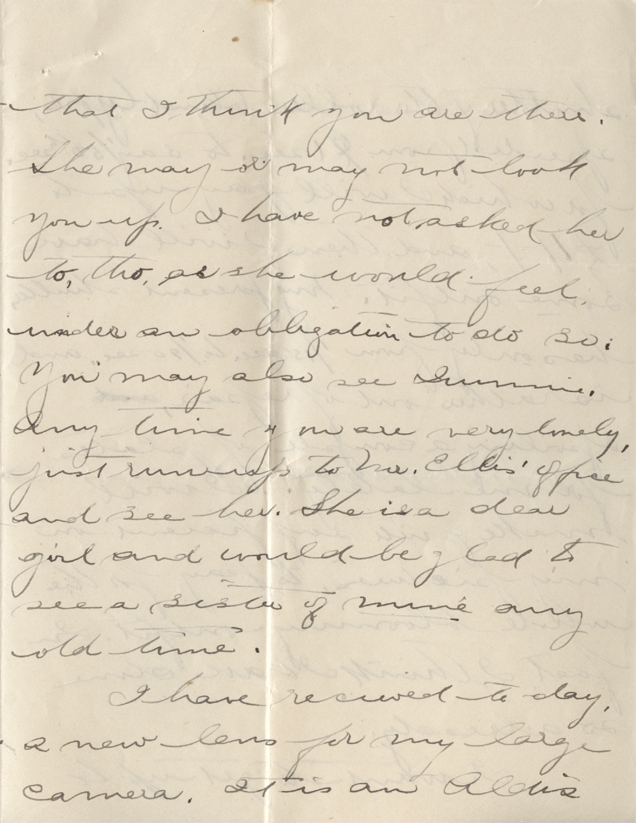 that I think you are there.
She may or may not look
you up. I have not asked her
to, tho, as she would feel
under an obligation to do so.
You may also see
Any time you are very lonely,
just run up to Mr. Ellis' office
and see her. She is a dear
girl and would be glad to
see a sister of mine any
old time.
I have recieved to day,
a new lens for my large
camera. It is an Aldis